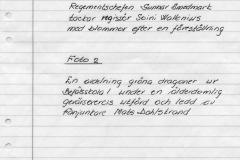 Regementschefen Gunnar Bondmark
tackar regissör Soini Wallenius
med blommor efter en föreställning
Foto 2
En avdelning gröna dragoner ur
under en ålderdomlig
gevärsexercis utförd och ledd av
Fanjunkare Mats Dahlstrand